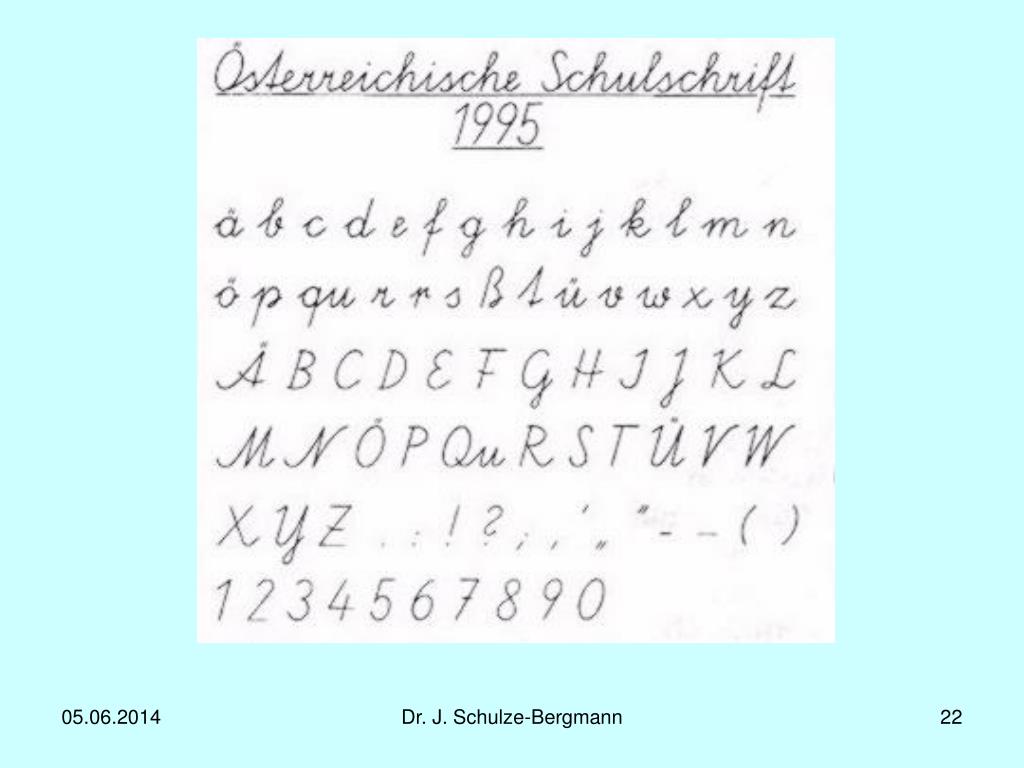 Österreichische Schulschrift
1995
ä b c d e f g h i j k l m n
ö p qu r r s ß t ü v w x y z
Ä B C D E F G H I J K L
M N Ö P Qu R S T Ü V W
X Y Z . : ! ? ; , ' „ " - – ( )
1 2 3 4 5 6 7 8 9 0
05.06.2014 Dr. J. Schulze-Bergmann 22